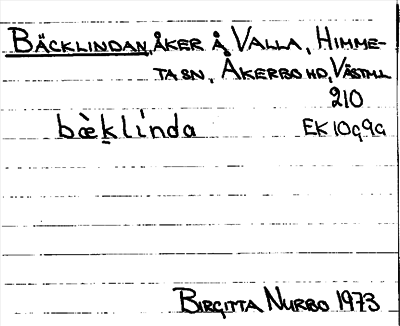 BÄCKLINDAN, ÅKER Å VALLA, HIMME-
TA SN, ÅKERBO HD, VÄSTML
210
bæ̀klínda EK 10g9a
BIRGITTA NURBO 1973